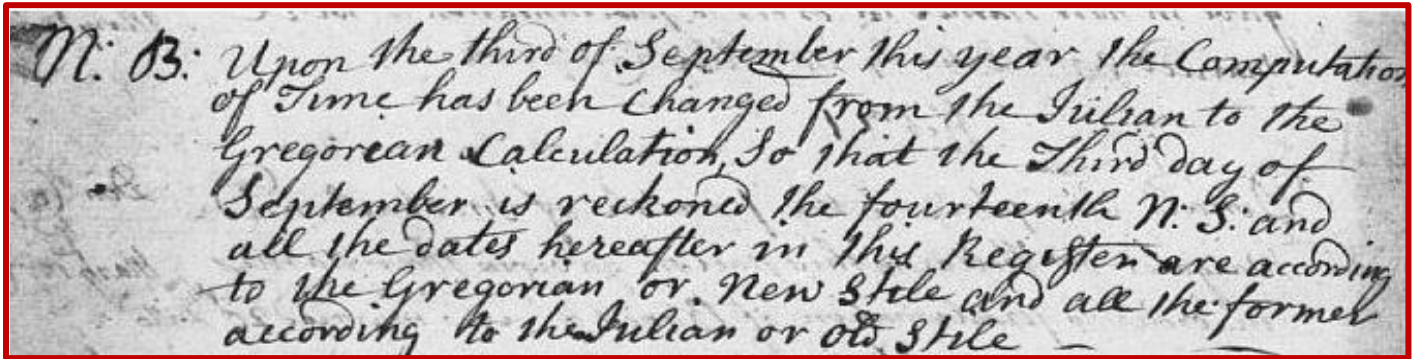 N: B: Upon the third of September this year the Computation
of Time has been changed from the Julian to the
Gregorian Calculation, So that the Third day of
September is reckoned the fourteenth N: S: and
all the dates hereafter in this Register are according
to the Gregorian or New Stile and all the former
according to the Julian or Old Stile